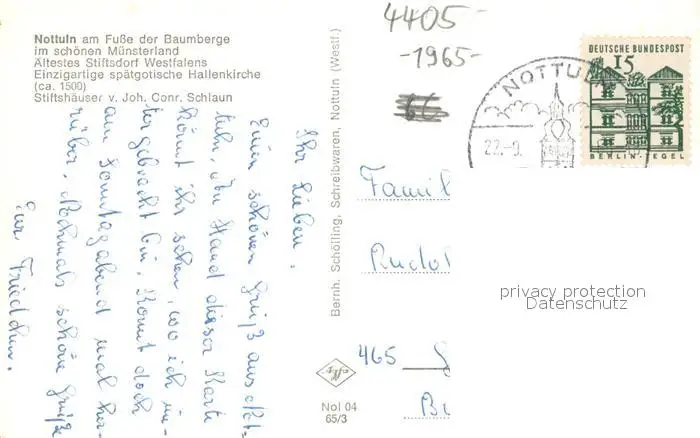 Nottuln am Fuße der Baumberge
im schönen Münsterland
Ältestes Stiftsdorf Westfalens
Einzigartige spätgotische Hallenkirche
(ca. 1500)
Stiftshäuser v. Joh. Conr. Schlaun
4405-
-1965-
66
NOTTULN
22.-9.
DEUTSCHE BUNDESPOST
15
BERLIN-TEGEL
Ihr Lieben,
Einen schönen Gruß aus Not-
tuln, an Hand dieser Karte
könnt ihr sehen, wo ich un-
tergebracht bin. Kommt doch
am Sonntagabend mal her-
rüber. Nochmals schöne Grüße
Eur Friedchen.
Bernh. Schölling, Schreibwaren, Nottuln (Westf.)
Famil
Rudol
465
Nol 04
65/3
privacy protection
Datenschutz